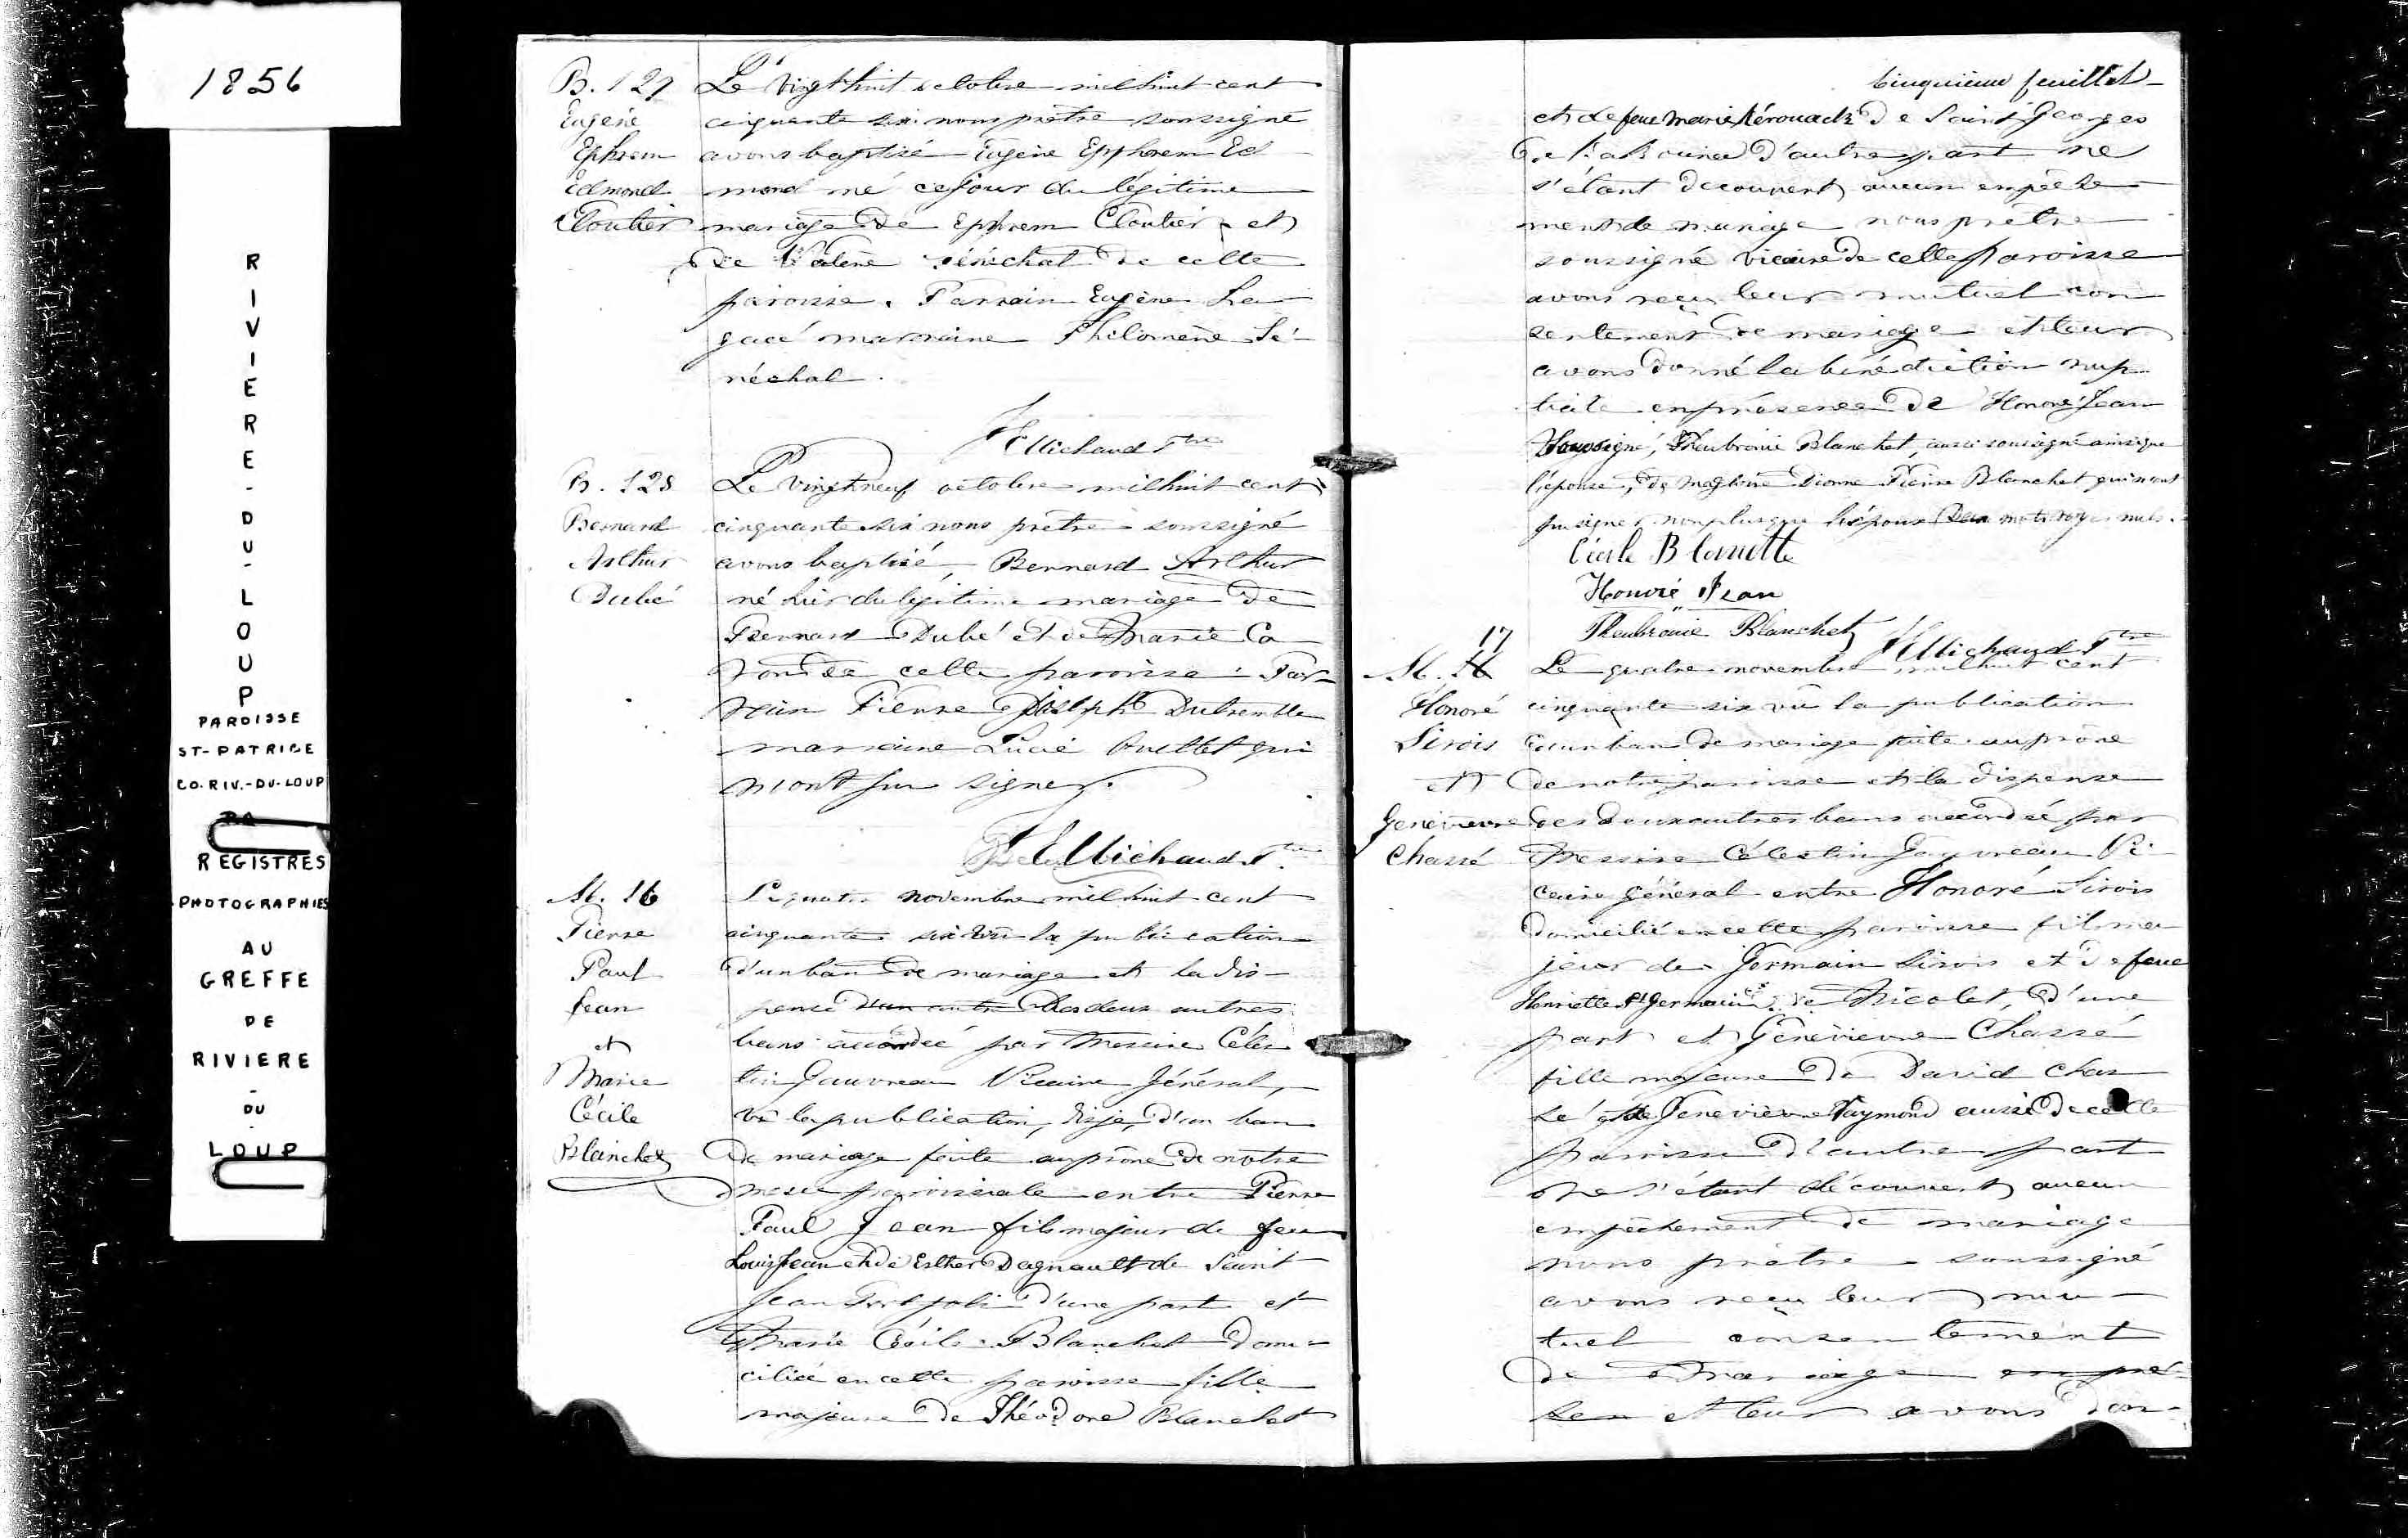 1856
RIVIERE-DU-LOUP
PAROISSE
ST-PATRICE
CO. RIV.-DU-LOUP
REGISTRES
PHOTOGRAPHIES
AU
GREFFE
DE
RIVIERE
-
DU
-
LOUP
B. 127
Eugène
Ephrem
Edmond
Cloutier
Le vingt huit octobre mil huit cent
cinquante six nous prêtre soussigné
avons baptisé Eugène Ephrem Ed
mond né ce jour du légitime
mariage de Ephrem Cloutier et
de Sénéchal de cette
paroisse. Parrain Eugène La
gacé marraine Philomène Sé-
néchal.
Michaud Ptre
B. 128
Bernard
Arthur
Dubé
Le vingt neuf octobre mil huit cent
cinquante six nous prêtre soussigné
avons baptisé, Bernard Arthur
né hier du légitime mariage de
Bernard Dubé et de Marie Ca
ron de cette paroisse. Par-
rain Pierre Joseph Dutremble
marraine Lucie Ouellet qui
n'ont su signer.
Michaud Ptre
M. 16
Pierre
Paul
Jean
et
Marie
Cécile
Blanchet
Le quatre novembre mil huit cent
cinquante six vu la publication
d'un ban de mariage et la dis-
pense d'un autre des deux autres
bans accordée par Messire Céles
tin Gauvreau Vicaire Général,
vu la publication, dis-je, d'un ban
de mariage faite au prône de notre
messe paroissiale entre Pierre
Paul Jean fils majeur de feu
Louis Jean et de Esther Dagnault de Saint
Jean Port Joli d'une part et
Marie Cécile Blanchet domi-
ciliée en cette paroisse fille
majeure de Théodore Blanchet
Cinquième feuillet
et de feue Marie Kérouack de Saint Georges
de d'autre part ne
s'étant découvert aucun empêche
ment de mariage nous prêtre
soussigné vicaire de cette paroisse
avons reçu leur mutuel con
sentement de mariage et leur
avons donné la bénédiction nup
tiale en présence de Honoré Jean
soussigné, Theubronie Blanchet, aussi soussigné ainsi que
l'épouse, de Magloire Dionne Pierre Blanchet qui n'ont
su signer non plus que l'époux mots rayés nuls.
Cécile Blanchette
Honoré Jean
Theubronie Blanchet
Michaud Ptre
M. 17
Honoré
Sirois
et
Genevieve
Chassé
Le quatre novembre mil huit cent
cinquante six vu la publication
d'un ban de mariage faite au prône
de notre paroisse et la dispense
des deux autres bans accordée par
Messire Célestin Gauvreau Vi-
caire général entre Honoré Sirois
domicilié en cette paroisse fils ma
jeur de Germain Sirois et de feue
Henriette St Germain de Nicolet, d'une
part et Genevieve Chassé
fille majeure de David Chas
sé et de Genevieve Raymond aussi de cette
paroisse d'autre part
ne s'étant découvert aucun
empêchement de mariage
nous prêtre soussigné
avons reçu leur mu-
tuel consentement
de mariage en pré-
sen et leur avons don-